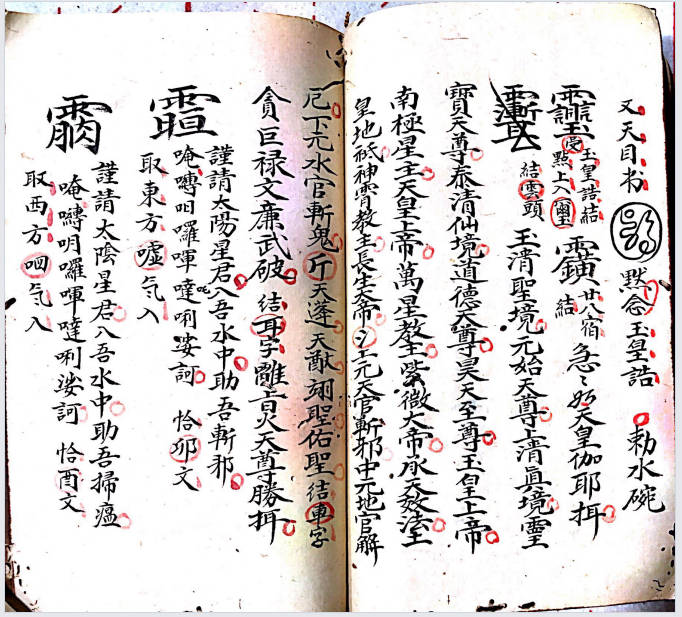 又天目书 默念玉皇誥 勅水碗
玉皇誥結 默上入 廿八宿結 急〻如天皇伽耶揖
結雲頭 玉清聖境元始天尊上清真境靈
寶天尊泰清仙境道德天尊昊天至尊玉皇上帝
南極星主天皇上帝萬星教主紫微大帝承天效法土
皇地祇神霄教主長生大帝上元天官斬邪中元地官解
厄下元水官斬鬼 斤 天蓬天猷翊聖佑聖 結車字
貪巨禄文廉武破 結耳字 雷火天尊勝揖
謹請太陽星君入吾水中助吾斬邪
唵嚩呾囉㖸噠唎娑訶 恰卯文
取東方噓氣入
謹請太陰星君入吾水中助吾掃瘟
唵嚩明囉㖸噠唎娑訶 恰酉文
取西方呬氣入